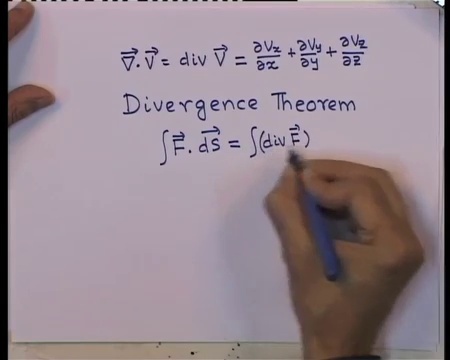 ∇⃗.V⃗ = div V⃗ = ∂Vx/∂x + ∂Vy/∂y + ∂Vz/∂z
Divergence Theorem
∫F⃗.dS⃗ = ∫(div F⃗)